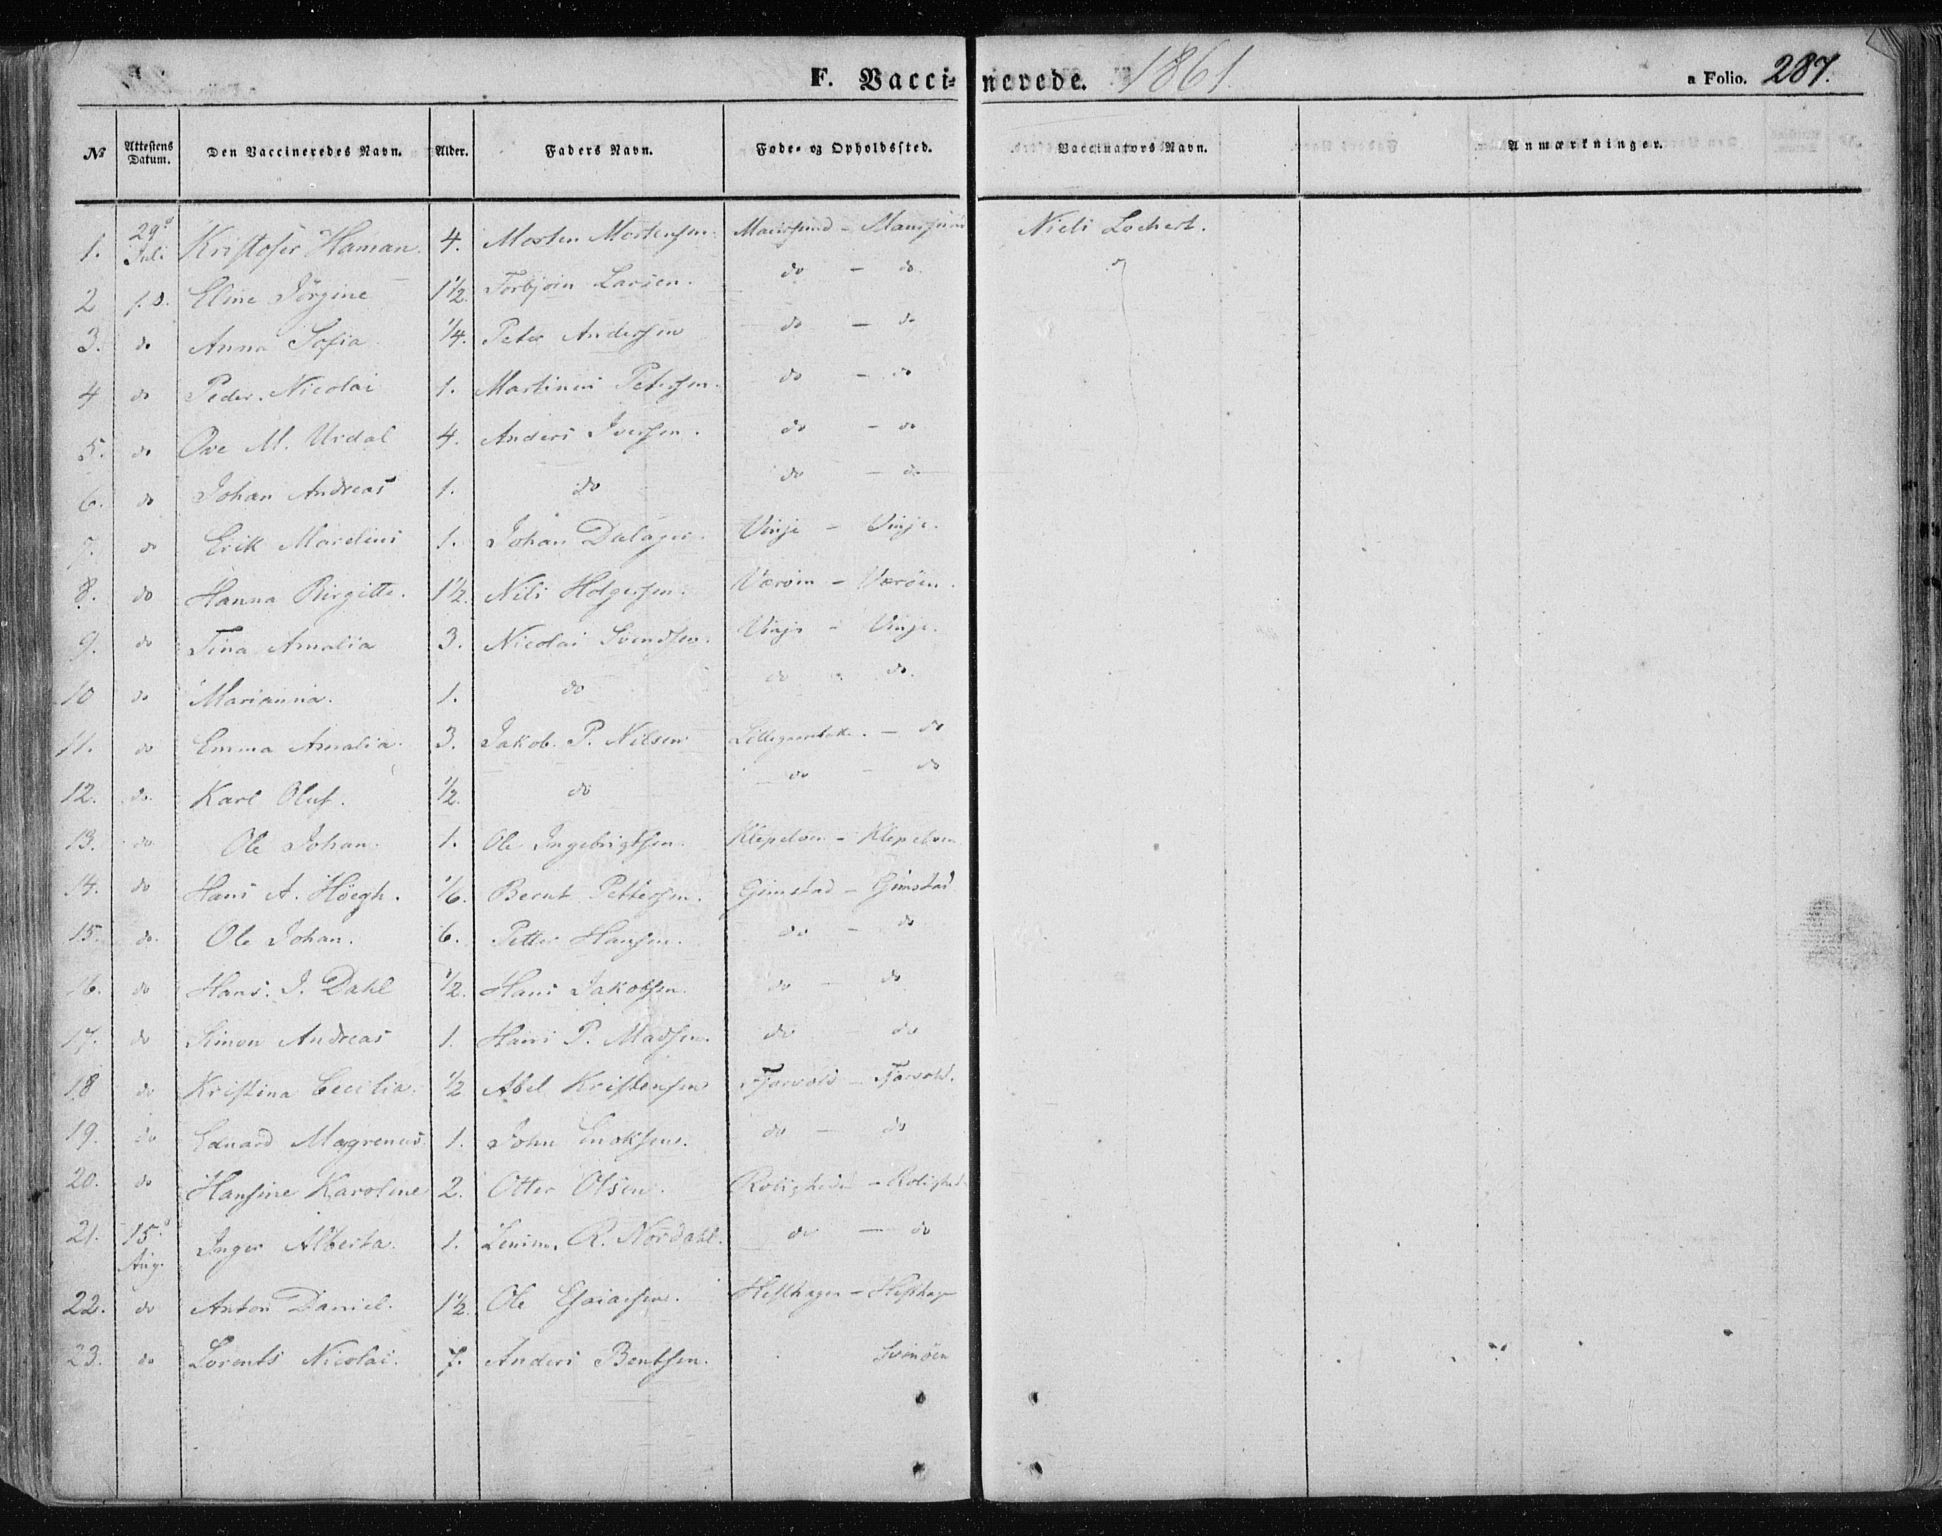 F. Vaccinerede. 1861 a Folio. 287.
№ Attestens Datum. Den Vaccineredes Navn. Alder. Faders Navn. Føde- og Opholdssted. Vaccinators Navn. Anmærkninger.
1. 29de Juli Kristofer Haman. 4. Morten Mortensen. Niels Lochert.
2 Eline Jørgine 1½. Torbjørn Larsen. do - do.
3. do Anna Sofia ¼. Peter Andersen do - do
4 do Peder Nicolai 1. Martinus Petersen. do - do
5. do Ove M. Urdal 4. Anders Iversen. do - do
6. do Johan Andreas 1. do do - do
7. do Erik Marelius 1. Johan Dalager. Vinje - Vinje.
8. do Hanna Birgitte. 1½. Nils Holgersen. Værøen - Værøen.
9. do Tina Amalia 3. Nicolai Svendsen. Vinje - Vinje.
10 do Marianna. 1. do do - do.
11. do Emma Amalia. 3. Jakob P. Nilsen - do
12. do. Karl Oluf. ½. do do - do
13. do Ole Johan. 1. Ole Ingebrigtsen. Klepelven - Klepelven
14. do Hans A. Höegh. 1/6. Bernt Pettersen. Gimstad - Gimstad.
15. do. Ole Johan. 6. Petter Hansen. do - do
16. do Hans. J. Dahl ½. Hans Jakobsen. do - do
17. do Simon Andreas 1. Hans P. Madsen. do - do
18 do Kristina Cecilia. ½ Abel Kristensen Tjorvold - Tjorvold.
19. do Eduard Magrenus 1. John Enoksen. do - do
20. do Hansine Karoline 2. Otter Olsen. Roligheden - Roligheden
21. 15de Aug. Inger Alberta. 1. R. Nordahl. do - do
22. do Anton Daniel. 1½. Ole Esaiasen. Hesthagen - Hesthag
23. do Lorents Nicolai. 7. Anders Bentsen. Svinøen